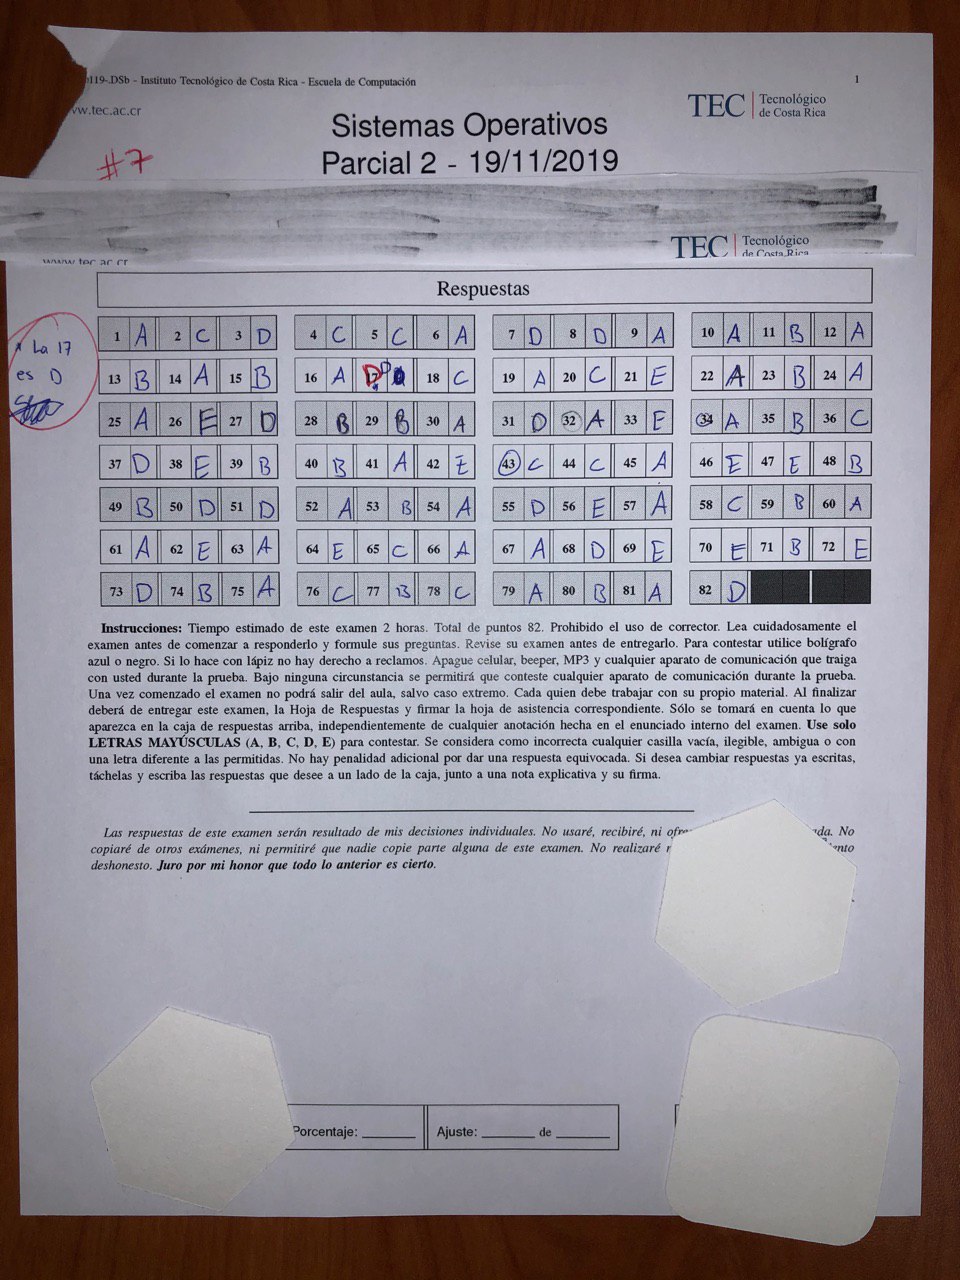 119-.DSb - Instituto Tecnológico de Costa Rica - Escuela de Computación 1
www.tec.ac.cr
TEC | Tecnológico
de Costa Rica
Sistemas Operativos
Parcial 2 - 19/11/2019
#7
TEC | Tecnológico
de Costa Rica
www.tec.ac.cr
Respuestas
* La 17
es D
1 A 2 C 3 D 4 C 5 C 6 A 7 D 8 D 9 A 10 A 11 B 12 A
13 B 14 A 15 B 16 A 17 D D 18 C 19 A 20 C 21 E 22 A 23 B 24 A
25 A 26 E 27 D 28 B 29 B 30 A 31 D 32 A 33 E 34 A 35 B 36 C
37 D 38 E 39 B 40 B 41 A 42 E 43 C 44 C 45 A 46 E 47 E 48 B
49 B 50 D 51 D 52 A 53 B 54 A 55 D 56 E 57 A 58 C 59 B 60 A
61 A 62 E 63 A 64 E 65 C 66 A 67 A 68 D 69 E 70 E 71 B 72 E
73 D 74 B 75 A 76 C 77 B 78 C 79 A 80 B 81 A 82 D
Instrucciones: Tiempo estimado de este examen 2 horas. Total de puntos 82. Prohibido el uso de corrector. Lea cuidadosamente el
examen antes de comenzar a responderlo y formule sus preguntas. Revise su examen antes de entregarlo. Para contestar utilice bolígrafo
azul o negro. Si lo hace con lápiz no hay derecho a reclamos. Apague celular, beeper, MP3 y cualquier aparato de comunicación que traiga
con usted durante la prueba. Bajo ninguna circunstancia se permitirá que conteste cualquier aparato de comunicación durante la prueba.
Una vez comenzado el examen no podrá salir del aula, salvo caso extremo. Cada quien debe trabajar con su propio material. Al finalizar
deberá de entregar este examen, la Hoja de Respuestas y firmar la hoja de asistencia correspondiente. Sólo se tomará en cuenta lo que
aparezca en la caja de respuestas arriba, independientemente de cualquier anotación hecha en el enunciado interno del examen. Use solo
LETRAS MAYÚSCULAS (A, B, C, D, E) para contestar. Se considera como incorrecta cualquier casilla vacía, ilegible, ambigua o con
una letra diferente a las permitidas. No hay penalidad adicional por dar una respuesta equivocada. Si desea cambiar respuestas ya escritas,
táchelas y escriba las respuestas que desee a un lado de la caja, junto a una nota explicativa y su firma.
Las respuestas de este examen serán resultado de mis decisiones individuales. No usaré, recibiré, ni ofre ada. No
copiaré de otros exámenes, ni permitiré que nadie copie parte alguna de este examen. No realizaré
deshonesto. Juro por mi honor que todo lo anterior es cierto.
Porcentaje: ______ Ajuste: ______ de ______